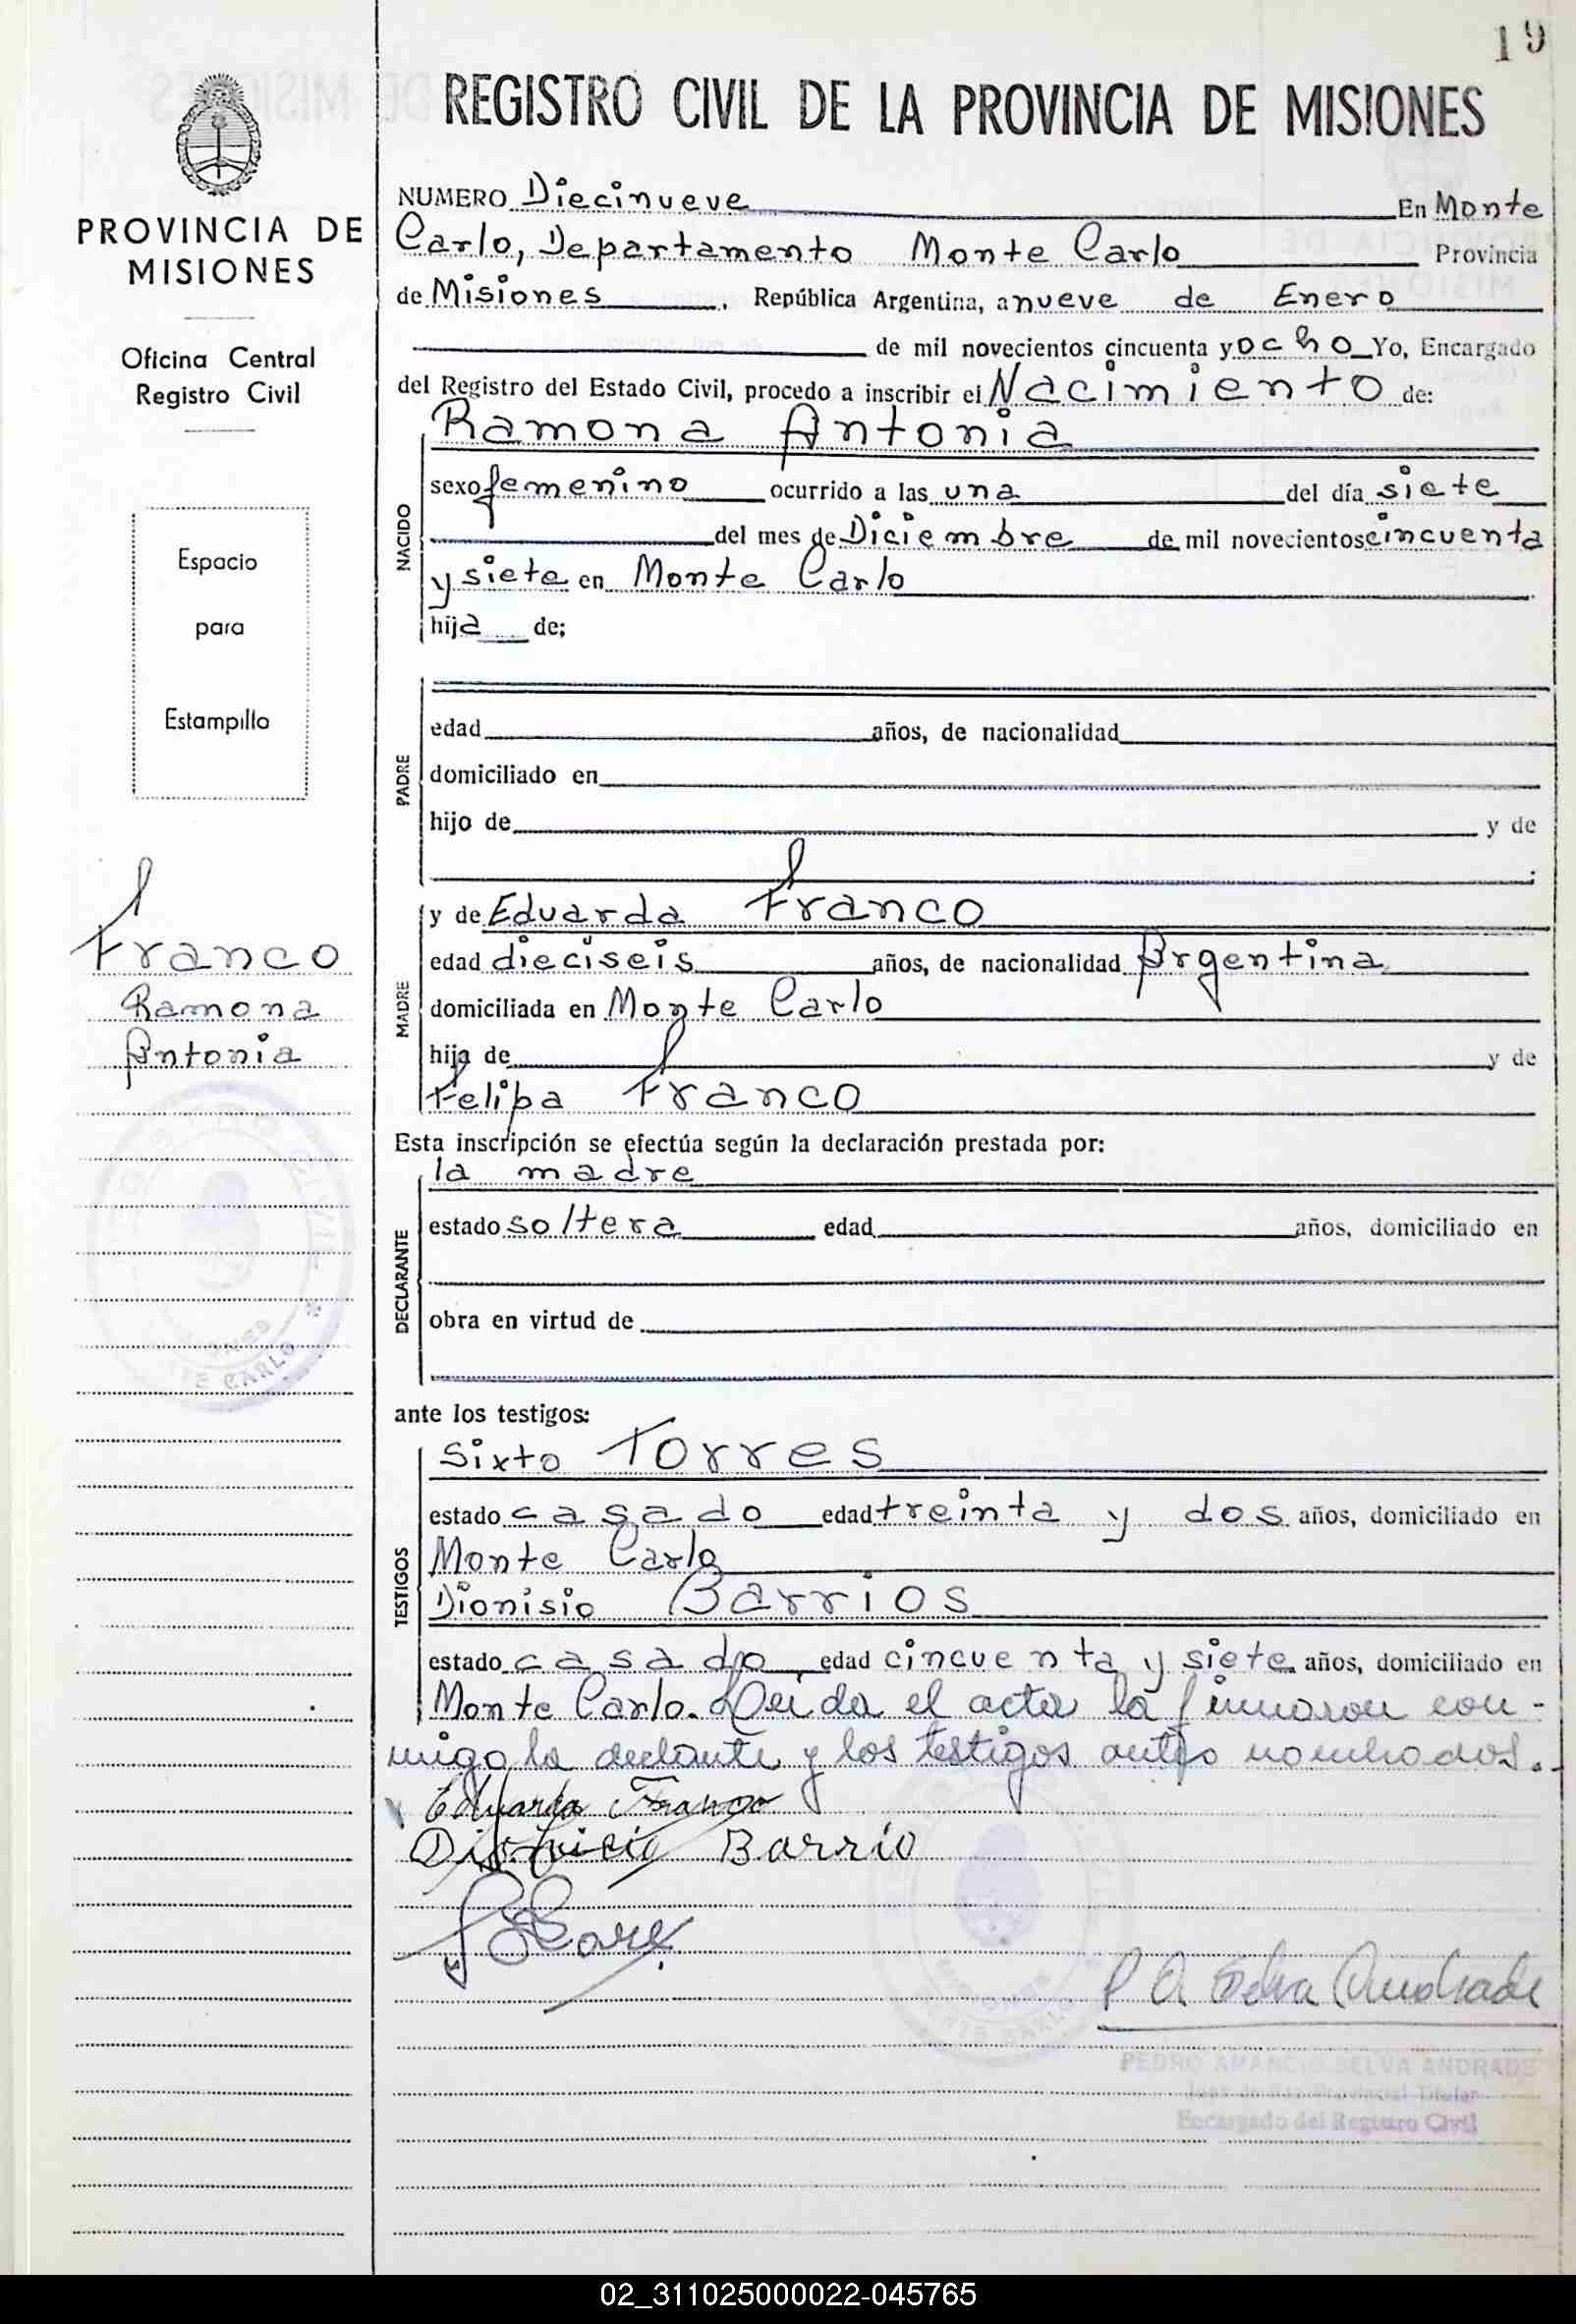 19
REGISTRO CIVIL DE LA PROVINCIA DE MISIONES
PROVINCIA DE
MISIONES
Oficina Central
Registro Civil
Espacio
para
Estampillo
Franco
Ramona
Antonia
NUMERO Diecinueve En Monte
Carlo, Departamento Monte Carlo Provincia
de Misiones, República Argentina, a nueve de Enero
de mil novecientos cincuenta y ocho Yo, Encargado
del Registro del Estado Civil, procedo a inscribir el Nacimiento de:
NACIDO
Ramona Antonia
sexo femenino ocurrido a las una del día siete
del mes de Diciembre de mil novecientos cincuenta
y siete en Monte Carlo
hija de;
PADRE
edad años, de nacionalidad
domiciliado en
hijo de y de
MADRE
y de Eduarda Franco
edad dieciseis años, de nacionalidad Argentina
domiciliada en Monte Carlo
hija de y de
Felipa Franco
Esta inscripción se efectúa según la declaración prestada por:
DECLARANTE
la madre
estado soltera edad años, domiciliado en
obra en virtud de
ante los testigos:
TESTIGOS
Sixto Torres
estado casado edad treinta y dos años, domiciliado en
Monte Carlo
Dionisio Barrios
estado casado edad cincuenta y siete años, domiciliado en
Monte Carlo. Leida el acta la firmaron con-
migo la declante y los testigos antes nombrados.
Eduarda Franco
Barrio
P A Selva Andrade
PEDRO AMANCIO SELVA ANDRADE
Encargado del Registro Civil
CARLO
02_311025000022-045765